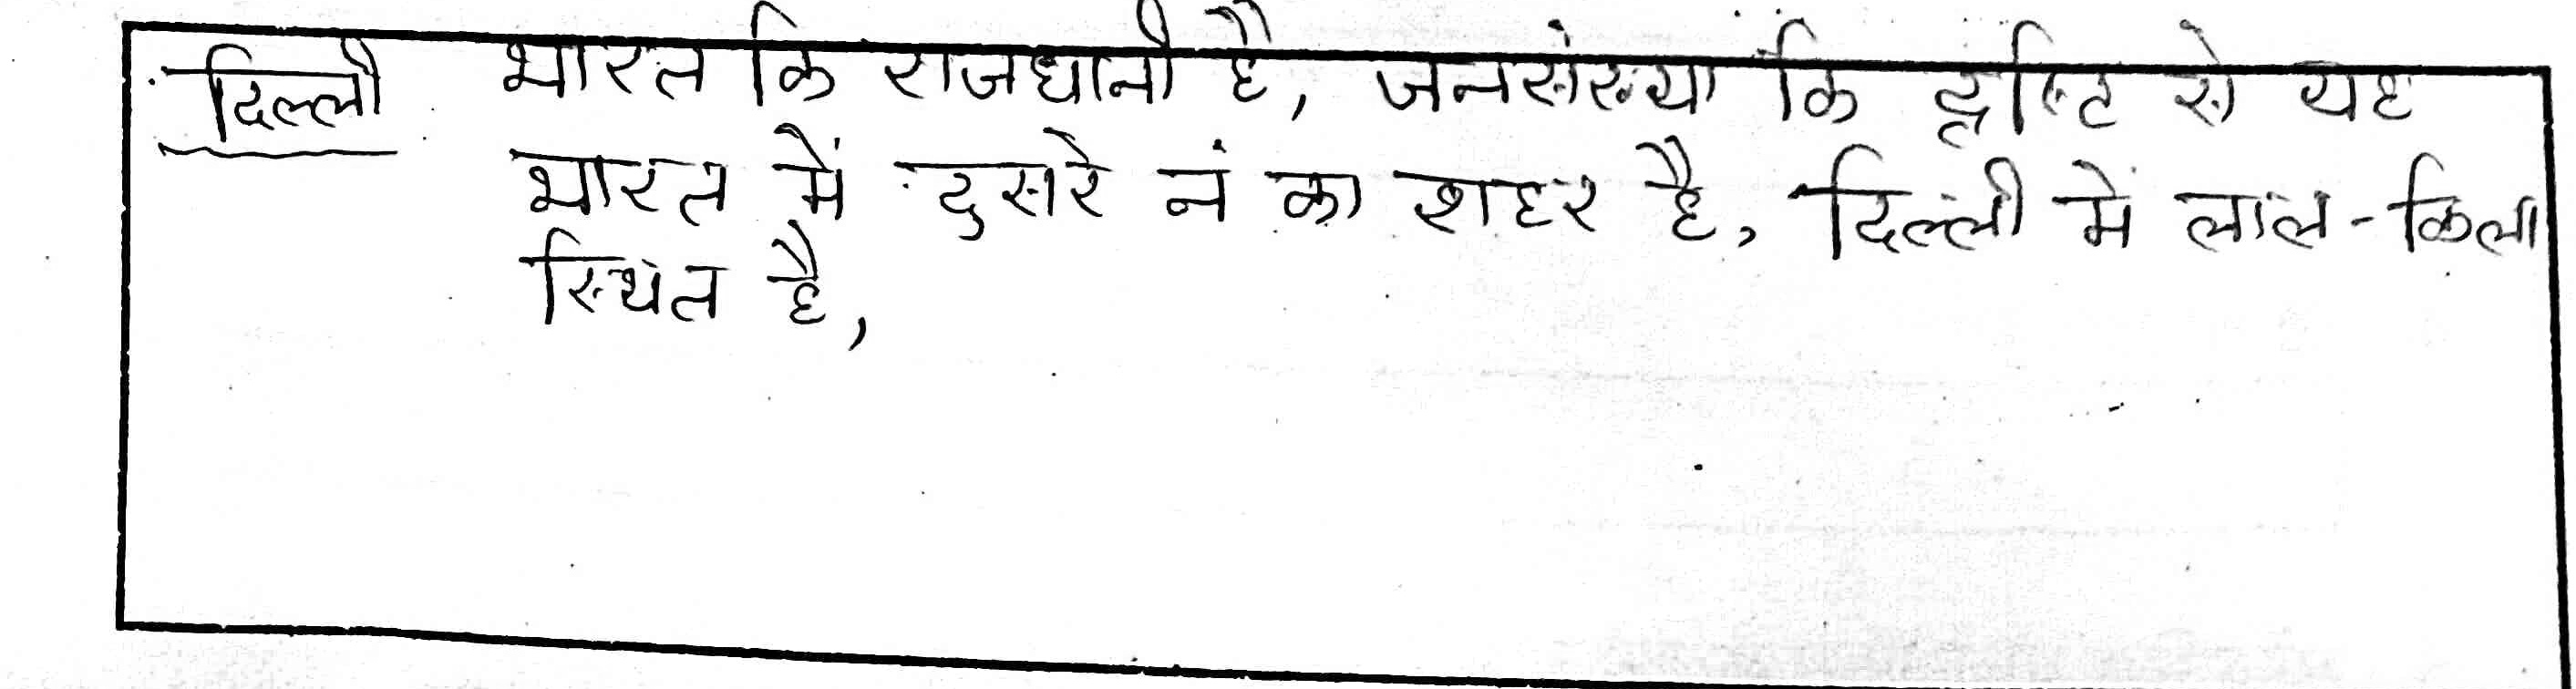 दिल्ली भारत कि राजधानी है, जनसंख्या कि द्रष्टि से यह
भारत में दुसरे नं का शहर है, दिल्ली में लाल-किला
स्थित है,